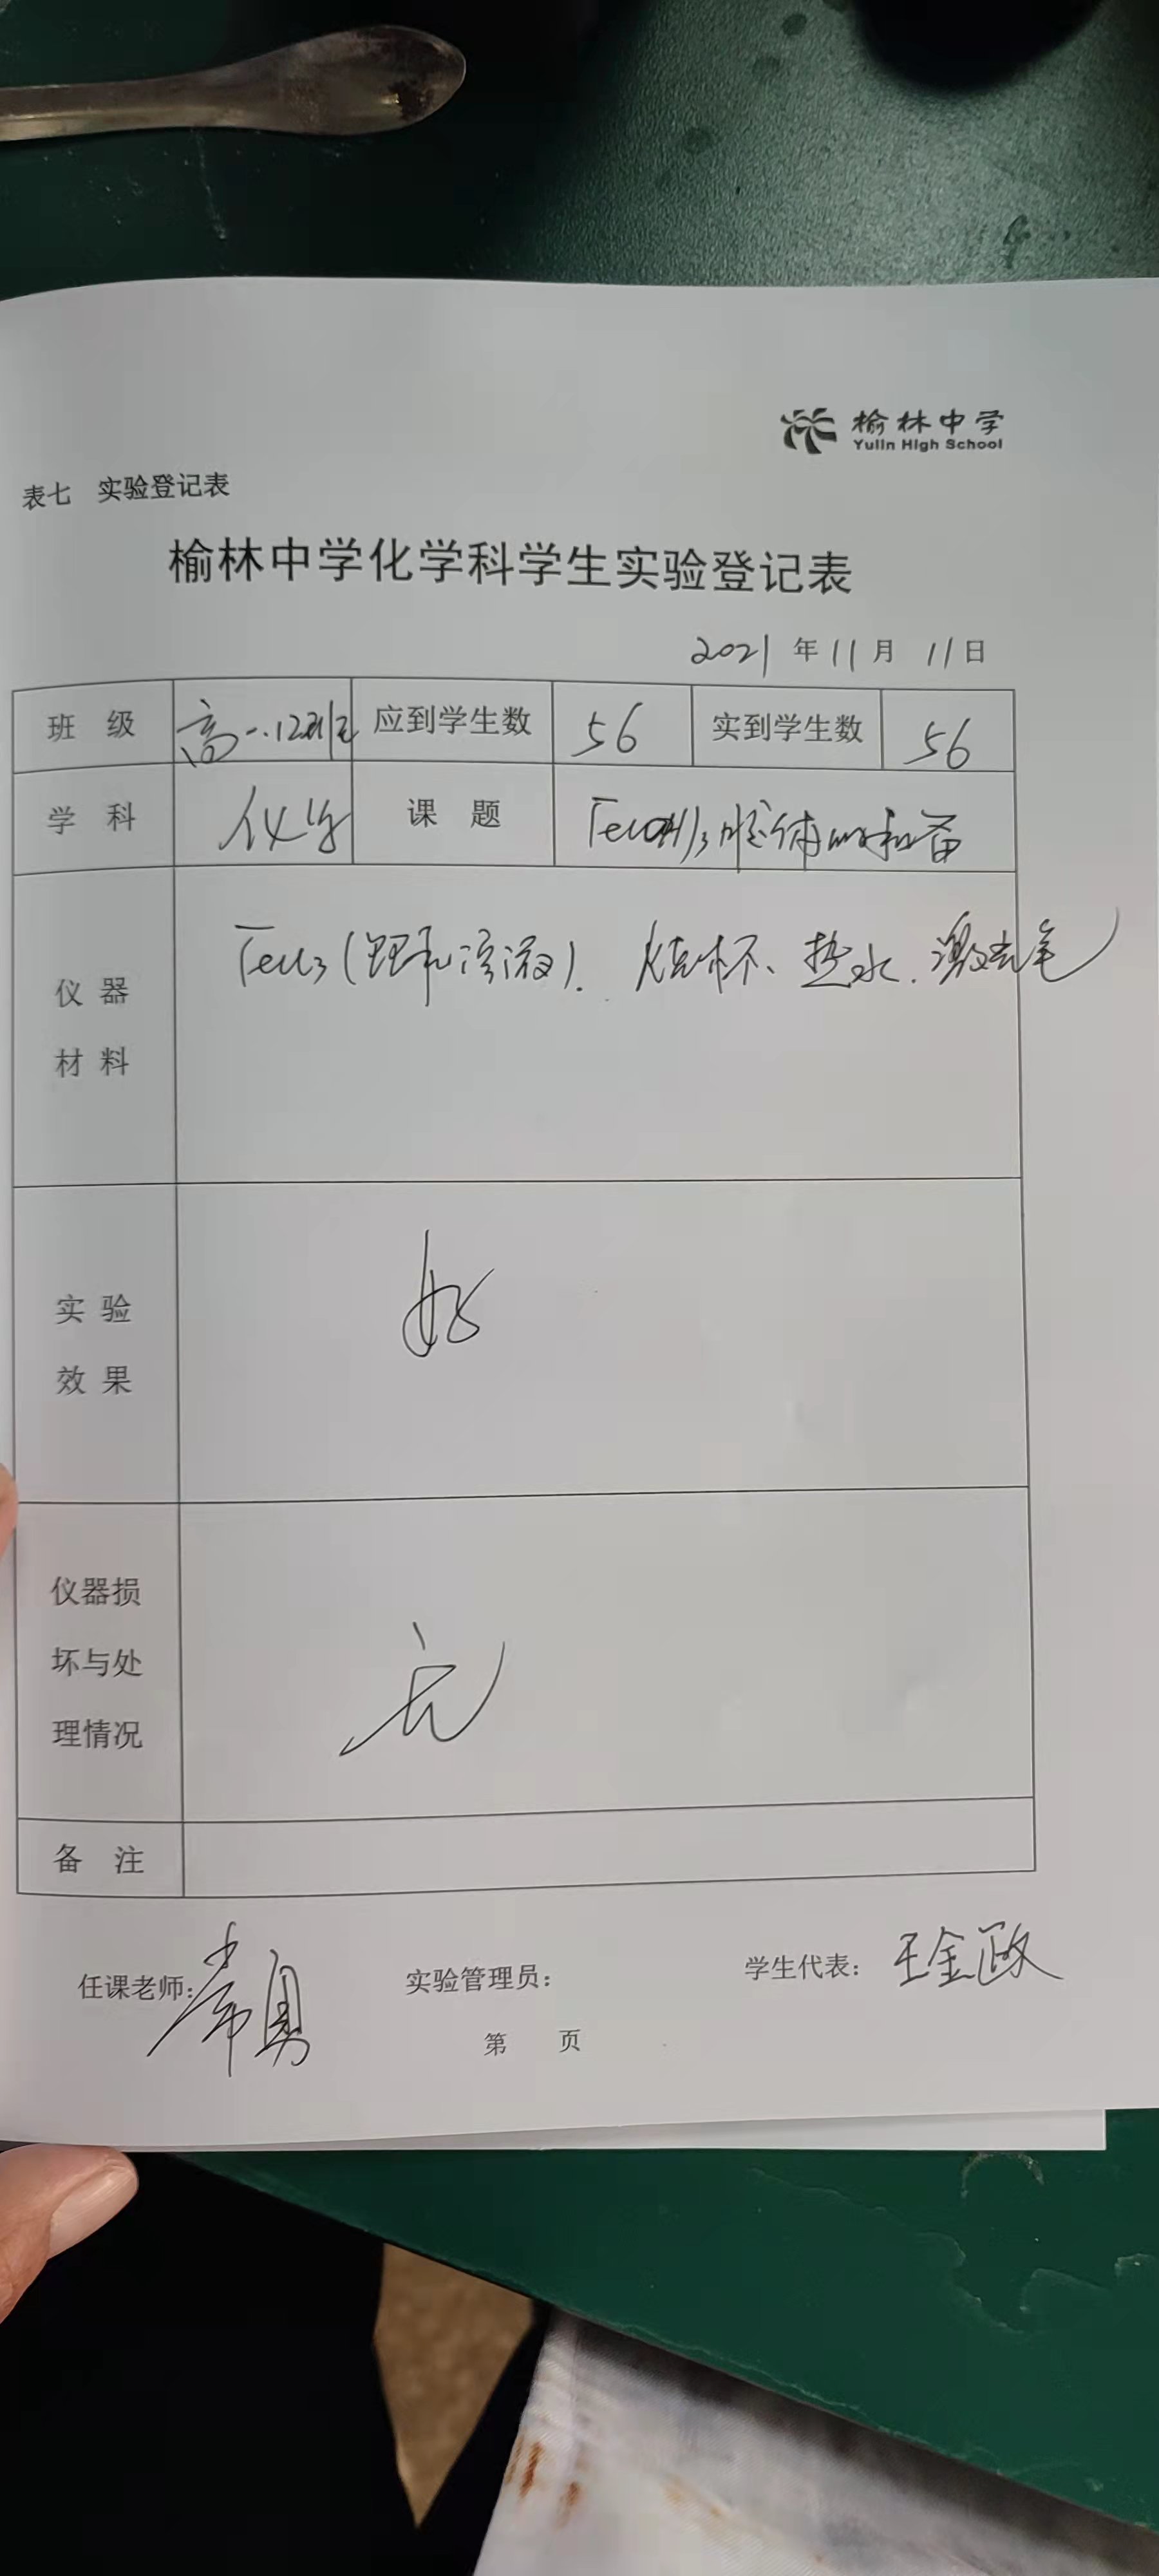 榆林中学
Yulin High School
表七 实验登记表
榆林中学化学科学生实验登记表
2021 年 11 月 11 日
班 级 高一.12班 应到学生数 56 实到学生数 56
学 科 化学 课 题 Fe(OH)3胶体的制备
仪 器
材 料
FeCl3(饱和溶液). 烧杯、热水.激光笔
实 验
效 果
好
仪器损
坏与处
理情况
无
备 注
任课老师:常勇 实验管理员: 学生代表:王金政
第 页